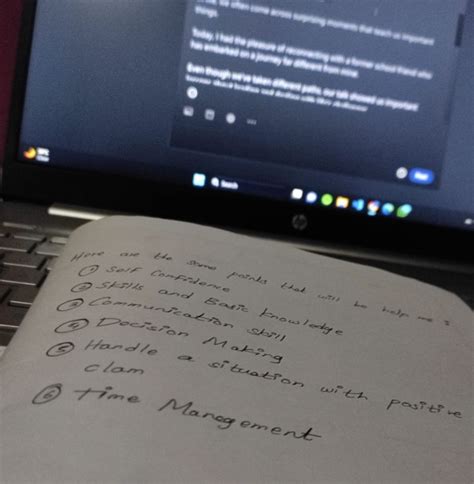 we often come across surprising moments that teach us important
things.
Today, I had the pleasure of reconnecting with a former school friend who
has embarked on a journey far different from mine.
Even though we've taken different paths, our talk showed us important
Search
hp
Here are the some points that will be help me :
① Self Confidence
② Skills and Basic knowledge
③ Communication skill
④ Decision Making
⑤ Handle a situation with positive
clam
⑥ Time Management